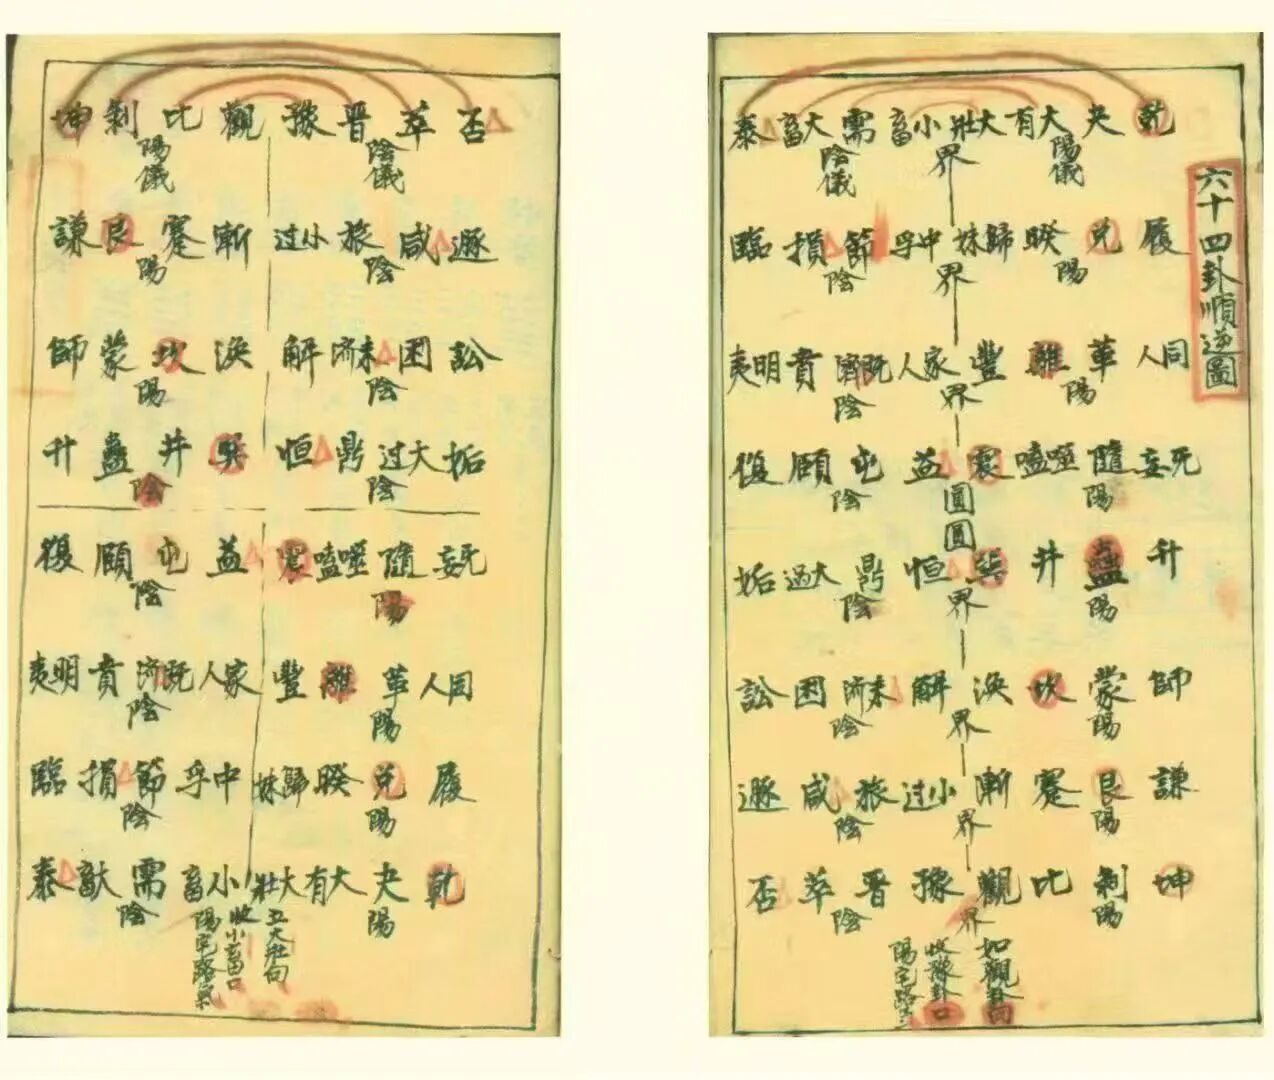 六十四卦順逆圖
乾 夬 大有 大壯 小畜 需 大畜 泰
陽儀 界 陰儀
履 兌 睽 歸妹 中孚 節 損 臨
陽 界 陰
同人 革 離 豐 家人 既濟 賁 明夷
陽 界 陰
无妄 隨 噬嗑 震 益 屯 頤 復
陽 圓圓 陰
升 蠱 井 巽 恒 鼎 大過 姤
陽 界 陰
師 蒙 坎 渙 解 未濟 困 訟
陽 界 陰
謙 艮 蹇 漸 小過 旅 咸 遯
陽 界 陰
坤 剝 比 觀 豫 晉 萃 否
陽 界 陰
如觀卦向
收豫卦口
陽宅路
否 萃 晉 豫 觀 比 剝 坤
陰儀 陽儀
遯 咸 旅 小過 漸 蹇 艮 謙
陰 陽
訟 困 未濟 解 渙 坎 蒙 師
陰 陽
姤 大過 鼎 恒 巽 井 蠱 升
陰 陰
无妄 隨 噬嗑 震 益 屯 頤 復
陽 陰
同人 革 離 豐 家人 既濟 賁 明夷
陽 陰
履 兌 睽 歸妹 中孚 節 損 臨
陽 陰
乾 夬 大有 大壯 小畜 需 大畜 泰
陽 陰
立大壯向
收小畜口
陽宅路氣